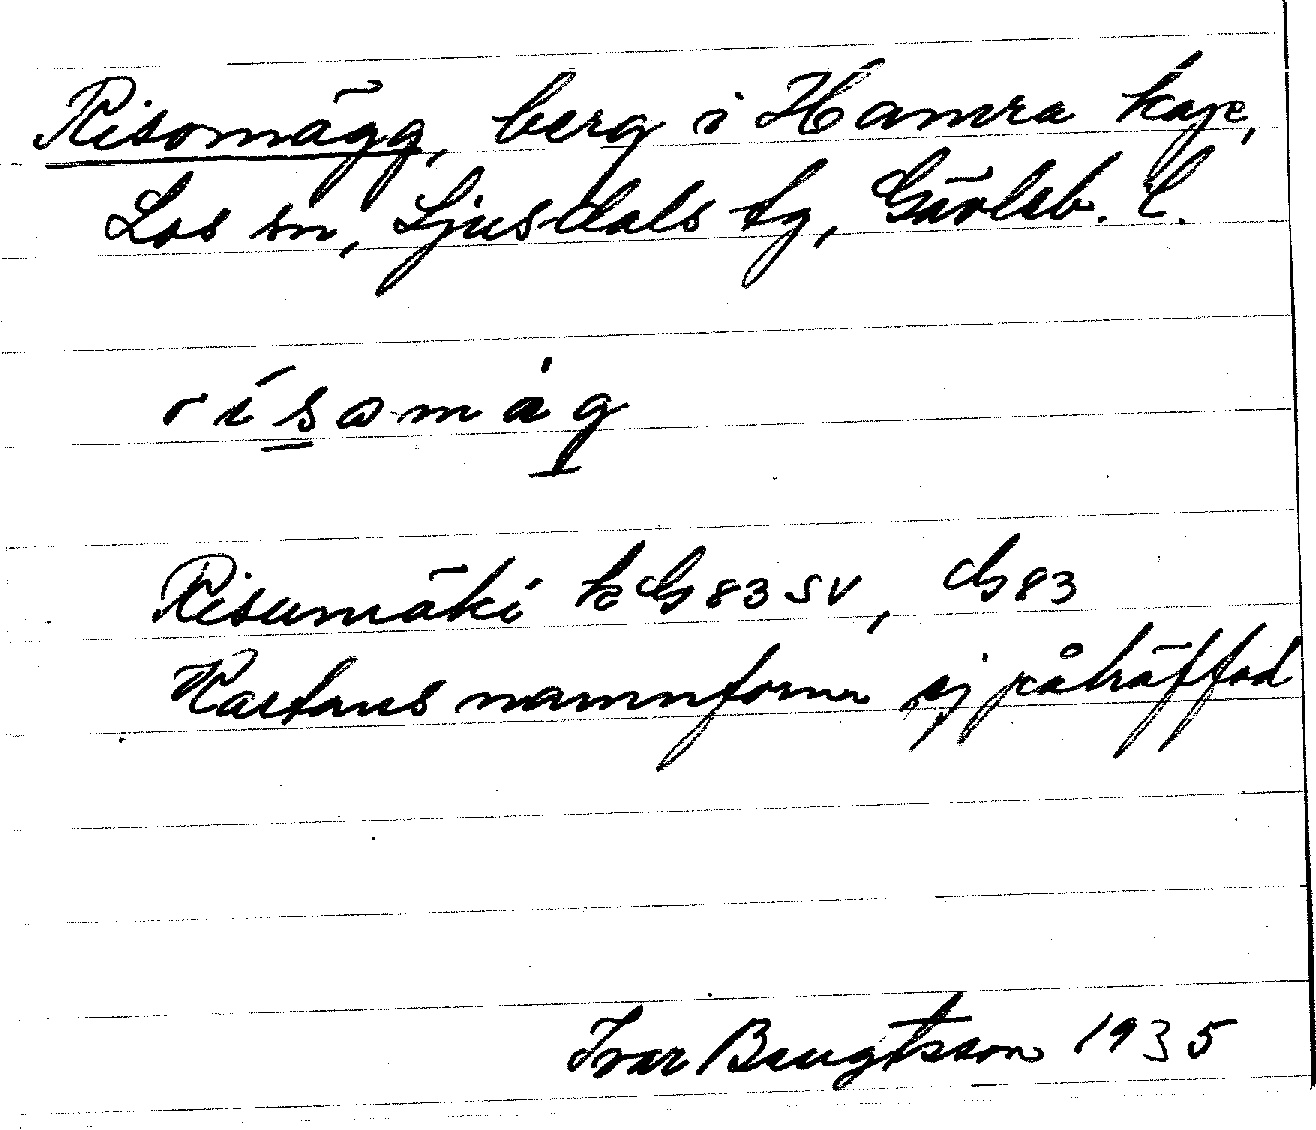 Risomägg, berg i Hamra kap.,
Los sn, Ljusdals tg, Gävleb. l.
rísomȧg
Risumäki kG 83 SV, G 83
Kartans namnform ej påträffad
Ivar Bengtsson 1935